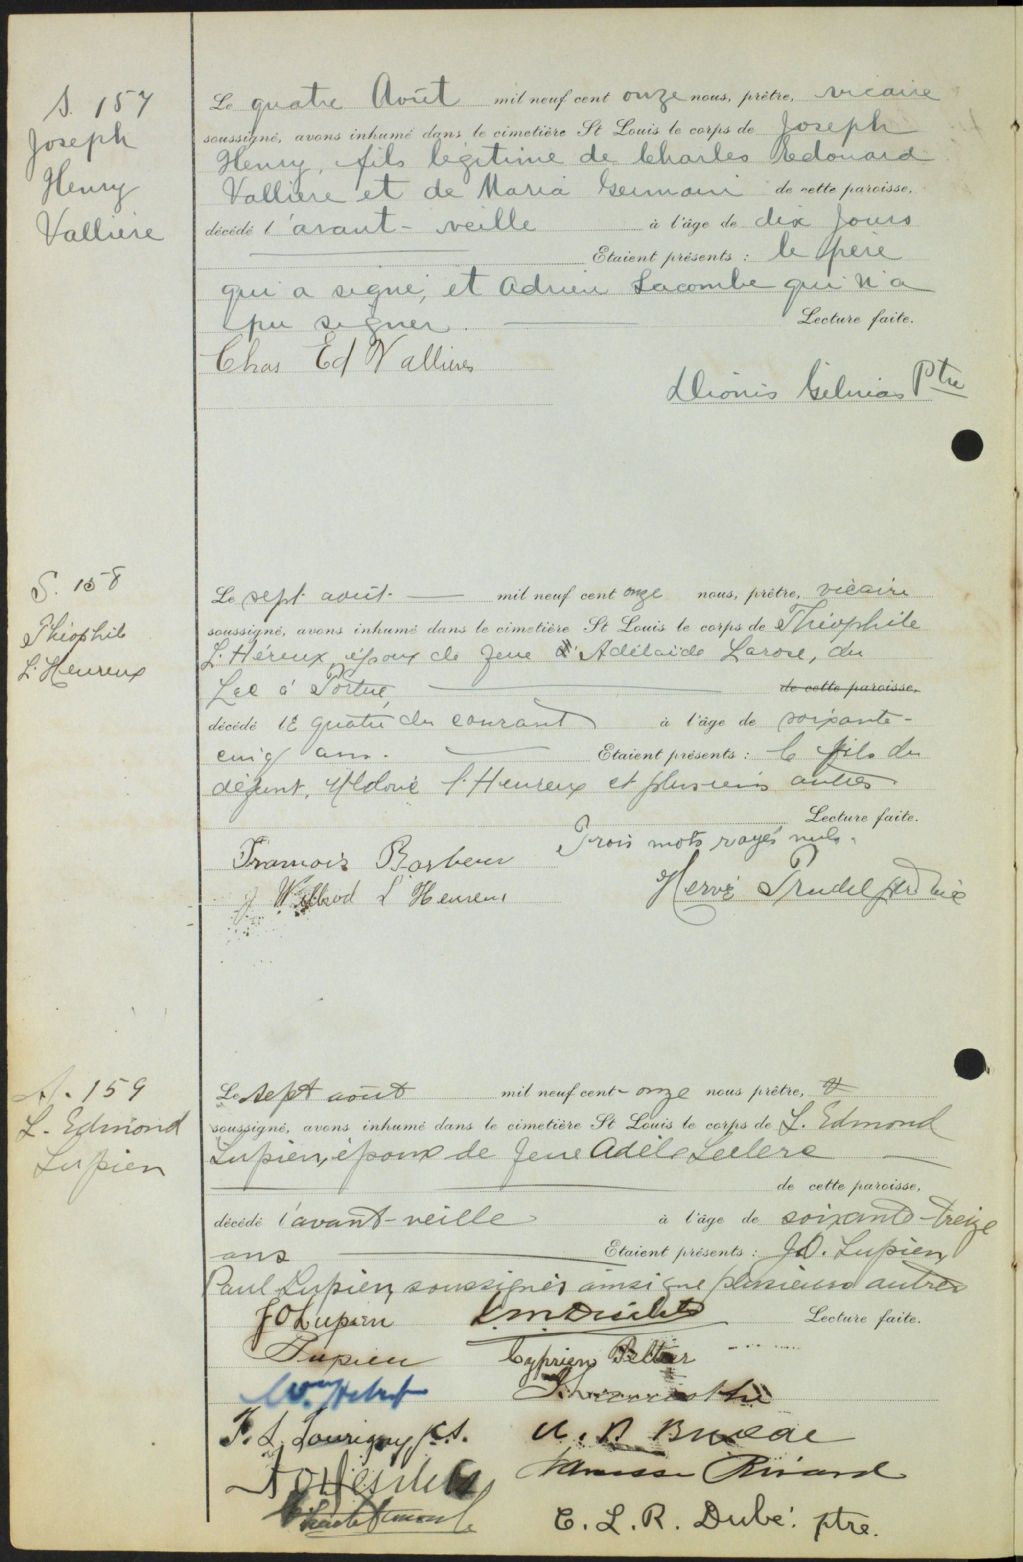 S. 157
Joseph
Henry
Vallière
Le quatre Août mil neuf cent onze nous, prêtre, vicaire
soussigné, avons inhumé dans le cimetière St Louis le corps de Joseph
Henry, fils légitime de Charles Edouard
Vallière et de Maria Germain de cette paroisse,
décédé l'avant-veille à l'âge de dix jours
Etaient présents : le père
qui a signé, et Adrien Lacombe qui n'a
pu signer. Lecture faite.
Chas Ed Vallières
Dionis Gélinas Ptre
S. 158
Théophile
L'Heureux
Le sept août mil neuf cent onze nous, prêtre, vicaire
soussigné, avons inhumé dans le cimetière St Louis le corps de Théophile
L'Héreux époux de feue Adélaïde Larose, du
Lac à Tortue, de cette paroisse,
décédé le quatre du courant à l'âge de soixante-
cinq ans. Etaient présents : le fils du
défunt, l'Heureux et plusieurs autres
Lecture faite.
Trois mots rayés nuls.
François Barbeau
L'Heureux
Hervé Trudel ptre vic
S. 159
L. Edmond
Lupien
Le sept août mil neuf cent onze nous prêtre,
soussigné, avons inhumé dans le cimetière St Louis le corps de L. Edmond
Lupien, époux de feue Adèle Leclerc
de cette paroisse,
décédé l'avant-veille à l'âge de soixante-treize
ans Etaient présents : J.O. Lupien,
Paul Lupien, soussignés ainsi que plusieurs autres
Lecture faite.
J O Lupien
Lupien
Cyprien Pelletier
F. L. Lourigny
Rivard
E. L. R. Dubé. ptre.